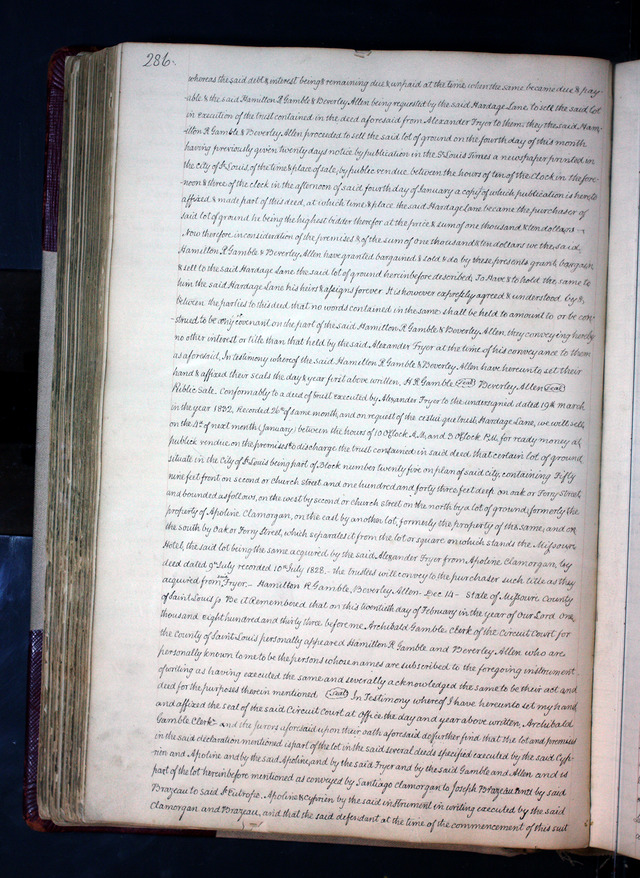 286.
whereas the said debt & interest being & remaining due & unpaid at the time when the same became due & pay-
able & the said Hamilton R Gamble & Beverley Allen being requested by the said Hardage Lane to sell the said lot
in execution of the trust contained in the deed aforesaid from Alexander Fryor to them; they the said Ham-
ilton R Gamble & Beverley Allen proceeded to sell the said lot of ground on the fourth day of this month
having previously given twenty days notice by publication in the St Louis Times a newspaper printed in
the city of St Louis, of the time & place of sale, by public vendue between the hours of ten of the clock in the fore-
noon & three of the clock in the afternoon of said fourth day of January a copy of which publication is hereto
affixed & made part of this deed, at which time & place the said Hardage Lane became the purchaser of
said lot of ground he being the highest bidder therefor at the price & sum of one thousand & ten dollars
Now therefore in consideration of the premises & of the sum of one thousand & ten dollars we the said
Hamilton R Gamble & Beverley Allen have granted bargained & sold & do by these presents grant bargain
& sell to the said Hardage Lane the said lot of ground hereinbefore described; To Have & to hold the same to
him the said Hardage Lane his heirs & assigns forever. It is however expressly agreed & understood by &
between the parties to this deed that no words contained in the same shall be held to amount to or be con-
strued to be any covenant on the part of the said Hamilton R Gamble & Beverley Allen, they conveying hereby
no other interest or title than that held by the said Alexander Fryor at the time of his conveyance to them
as aforesaid. In testimony whereof the said Hamilton R Gamble & Beverley Allen have hereunto set their
hand & affixed their seals the day & year first above written. H R Gamble (seal) Beverley Allen (seal)
Public Sale. Conformably to a deed of trust executed by Alexander Fryor to the undersigned dated 19th march
in the year 1832, Recorded 26th of same month, and on request of the cestui que trust, Hardage Lane, we will sell
on the next month (January) between the hours of 10 O'Clock A.M, and 3 O'Clock P.M for ready money at
publick vendue on the premises to discharge the trust contained in said deed that certain lot of ground
situate in the City of St Louis being part of Block number twenty five on plan of said city, containing Fifty
nine feet front on second or church street and one hundred and forty three feet deep on oak or Forry Street
and bounded as follows, on the west by second or church street on the north by a lot of ground, formerly the
property of Apoline Clamorgan, on the east by another lot, formerly the property of the same, and on
the south by Oak or Forry Street, which separates it from the lot or square on which stands the Missouri
Hotel, the said lot being the same acquired by the said Alexander Fryor from Apoline Clamorgan, by
deed dated 9th July recorded 10th July 1828,- the trustees will convey to the purchaser such title as they
acquired from said Fryor,- Hamilton R. Gamble, Beverley Allen- Dec 14- State of Missouri County
of Saint Louis ss Be it Remembered that on this twentieth day of February in the year of Our Lord one
thousand eight hundred and thirty three before me Archibald Gamble Clerk of the Circuit Court for
the County of Saint Louis personally appeared Hamilton R Gamble and Beverley Allen who are
personally known to me to be the persons whose names are subscribed to the foregoing instrument
of writing as having executed the same and severally acknowledged the same to be their act and
deed for the purposes therein mentioned. (seal) In Testimony whereof I have hereunto set my hand
and affixed the seal of the said Circuit Court at office the day and year above written. Archibald
Gamble Clerk- and the jurors aforesaid upon their oath aforesaid do further find, that the lot and premises
in the said declaration mentioned is part of the lot in the said several deeds specified executed by the said Cyp-
rien and Apoline and by the said Apoline, and by the said Fryer and by the said Gamble and Allen and is
part of the lot hereinbefore mentioned as conveyed by Santiago Clamorgan to Joseph Brazeau and by said
Brazeau to said St Eutrope, Apoline & Cyprien by the said instrument in writing executed by the said
Clamorgan and Brazeau, and that the said defendant at the time of the commencement of this suit